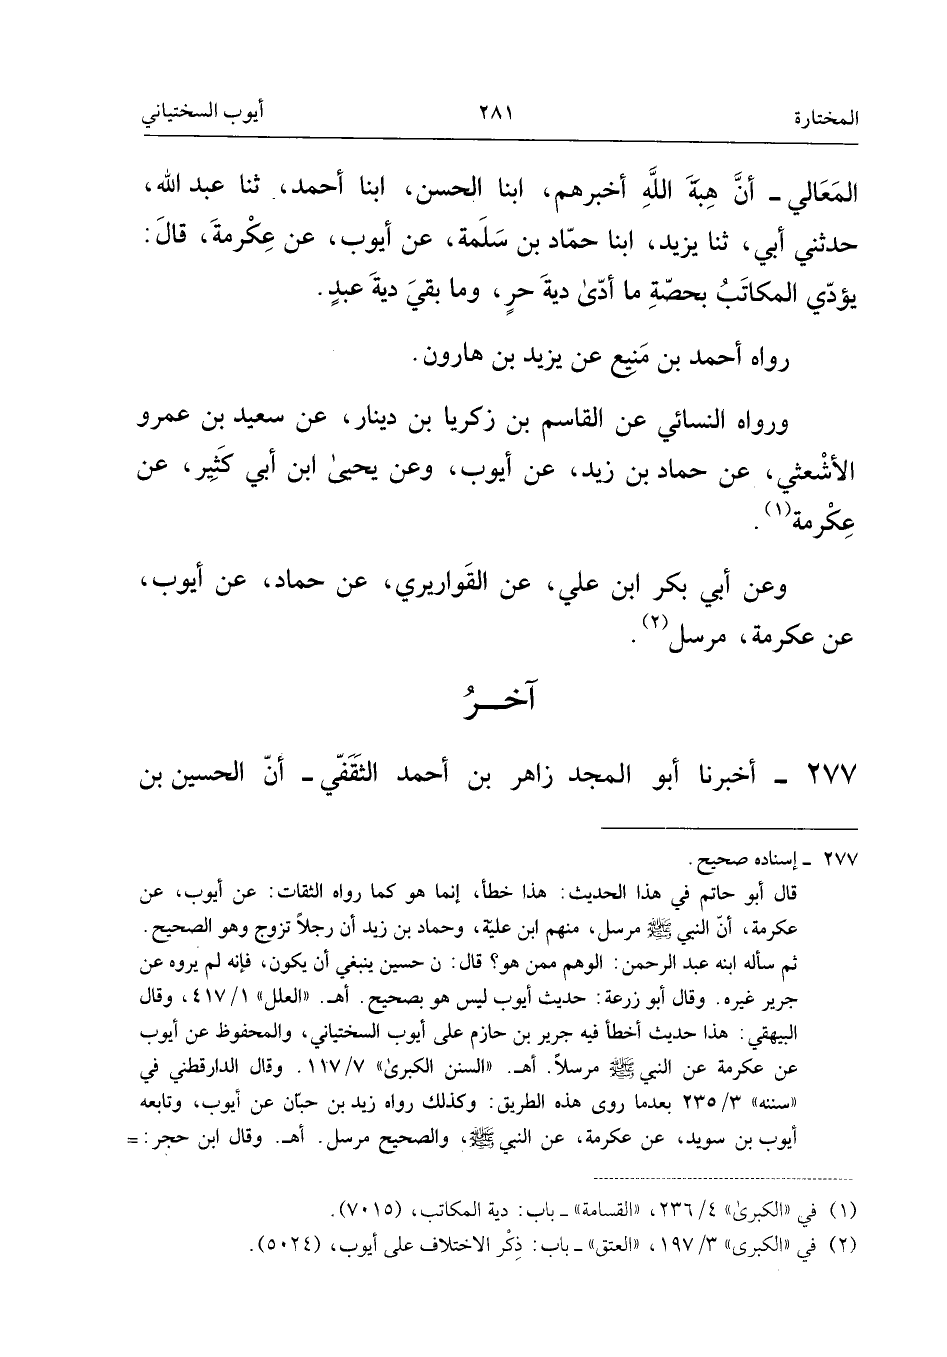 المختارة ٢٨١ أيوب السختياني
المَعَالي ـ أنَّ هِبَةَ اللَّهِ أخبرهم، ابنا الحسن، ابنا أحمد، ثنا عبد الله،
حدثني أبي، ثنا يزيد، ابنا حمّاد بن سَلَمة، عن أيوب، عن عِكْرمةَ، قالَ:
يؤدّي المكاتَبُ بحصّةِ ما أدّىٰ ديةَ حرٍ، وما بقيَ ديةَ عبدٍ.
رواه أحمد بن مَنِيع عن يزيد بن هارون.
ورواه النسائي عن القاسم بن زكريا بن دينار، عن سعيد بن عمرو
الأشْعثي، عن حماد بن زيد، عن أيوب، وعن يحيىٰ ابن أبي كَثِير، عن
عِكْرمة(١).
وعن أبي بكر ابن علي، عن القَواريري، عن حماد، عن أيوب،
عن عكرمة، مرسل(٢).
آخـــرُ
٢٧٧ ـ أخبرنا أبو المجد زاهر بن أحمد الثَقَفّي ـ أنّ الحسين بن
٢٧٧ ـ إسناده صحيح.
قال أبو حاتم في هذا الحديث: هذا خطأ، إنما هو كما رواه الثقات: عن أيوب، عن
عكرمة، أنّ النبي ﷺ مرسل، منهم ابن عليّة، وحماد بن زيد أن رجلاً تزوج وهو الصحيح.
ثم سأله ابنه عبد الرحمن: الوهم ممن هو؟ قال: ن حسين ينبغي أن يكون، فإنه لم يروه عن
جرير غيره. وقال أبو زرعة: حديث أيوب ليس هو بصحيح. أهـ. «العلل» ٤١٧/١، وقال
البيهقي: هذا حديث أخطأ فيه جرير بن حازم على أيوب السختياني، والمحفوظ عن أيوب
عن عكرمة عن النبي ﷺ مرسلاً. أهـ. «السنن الكبرىٰ» ١١٧/٧. وقال الدارقطني في
«سننه» ٢٣٥/٣ بعدما روى هذه الطريق: وكذلك رواه زيد بن حبّان عن أيوب، وتابعه
أيوب بن سويد، عن عكرمة، عن النبي ﷺ، والصحيح مرسل. أهـ. وقال ابن حجر: =
(١) في «الكبرىٰ» ٢٣٦/٤، «القسامة» ـ باب: دية المكاتب، (٧٠١٥).
(٢) في «الكبرى» ١٩٧/٣، «العتق» ـ باب: ذِكْر الاختلاف على أيوب، (٥٠٢٤).